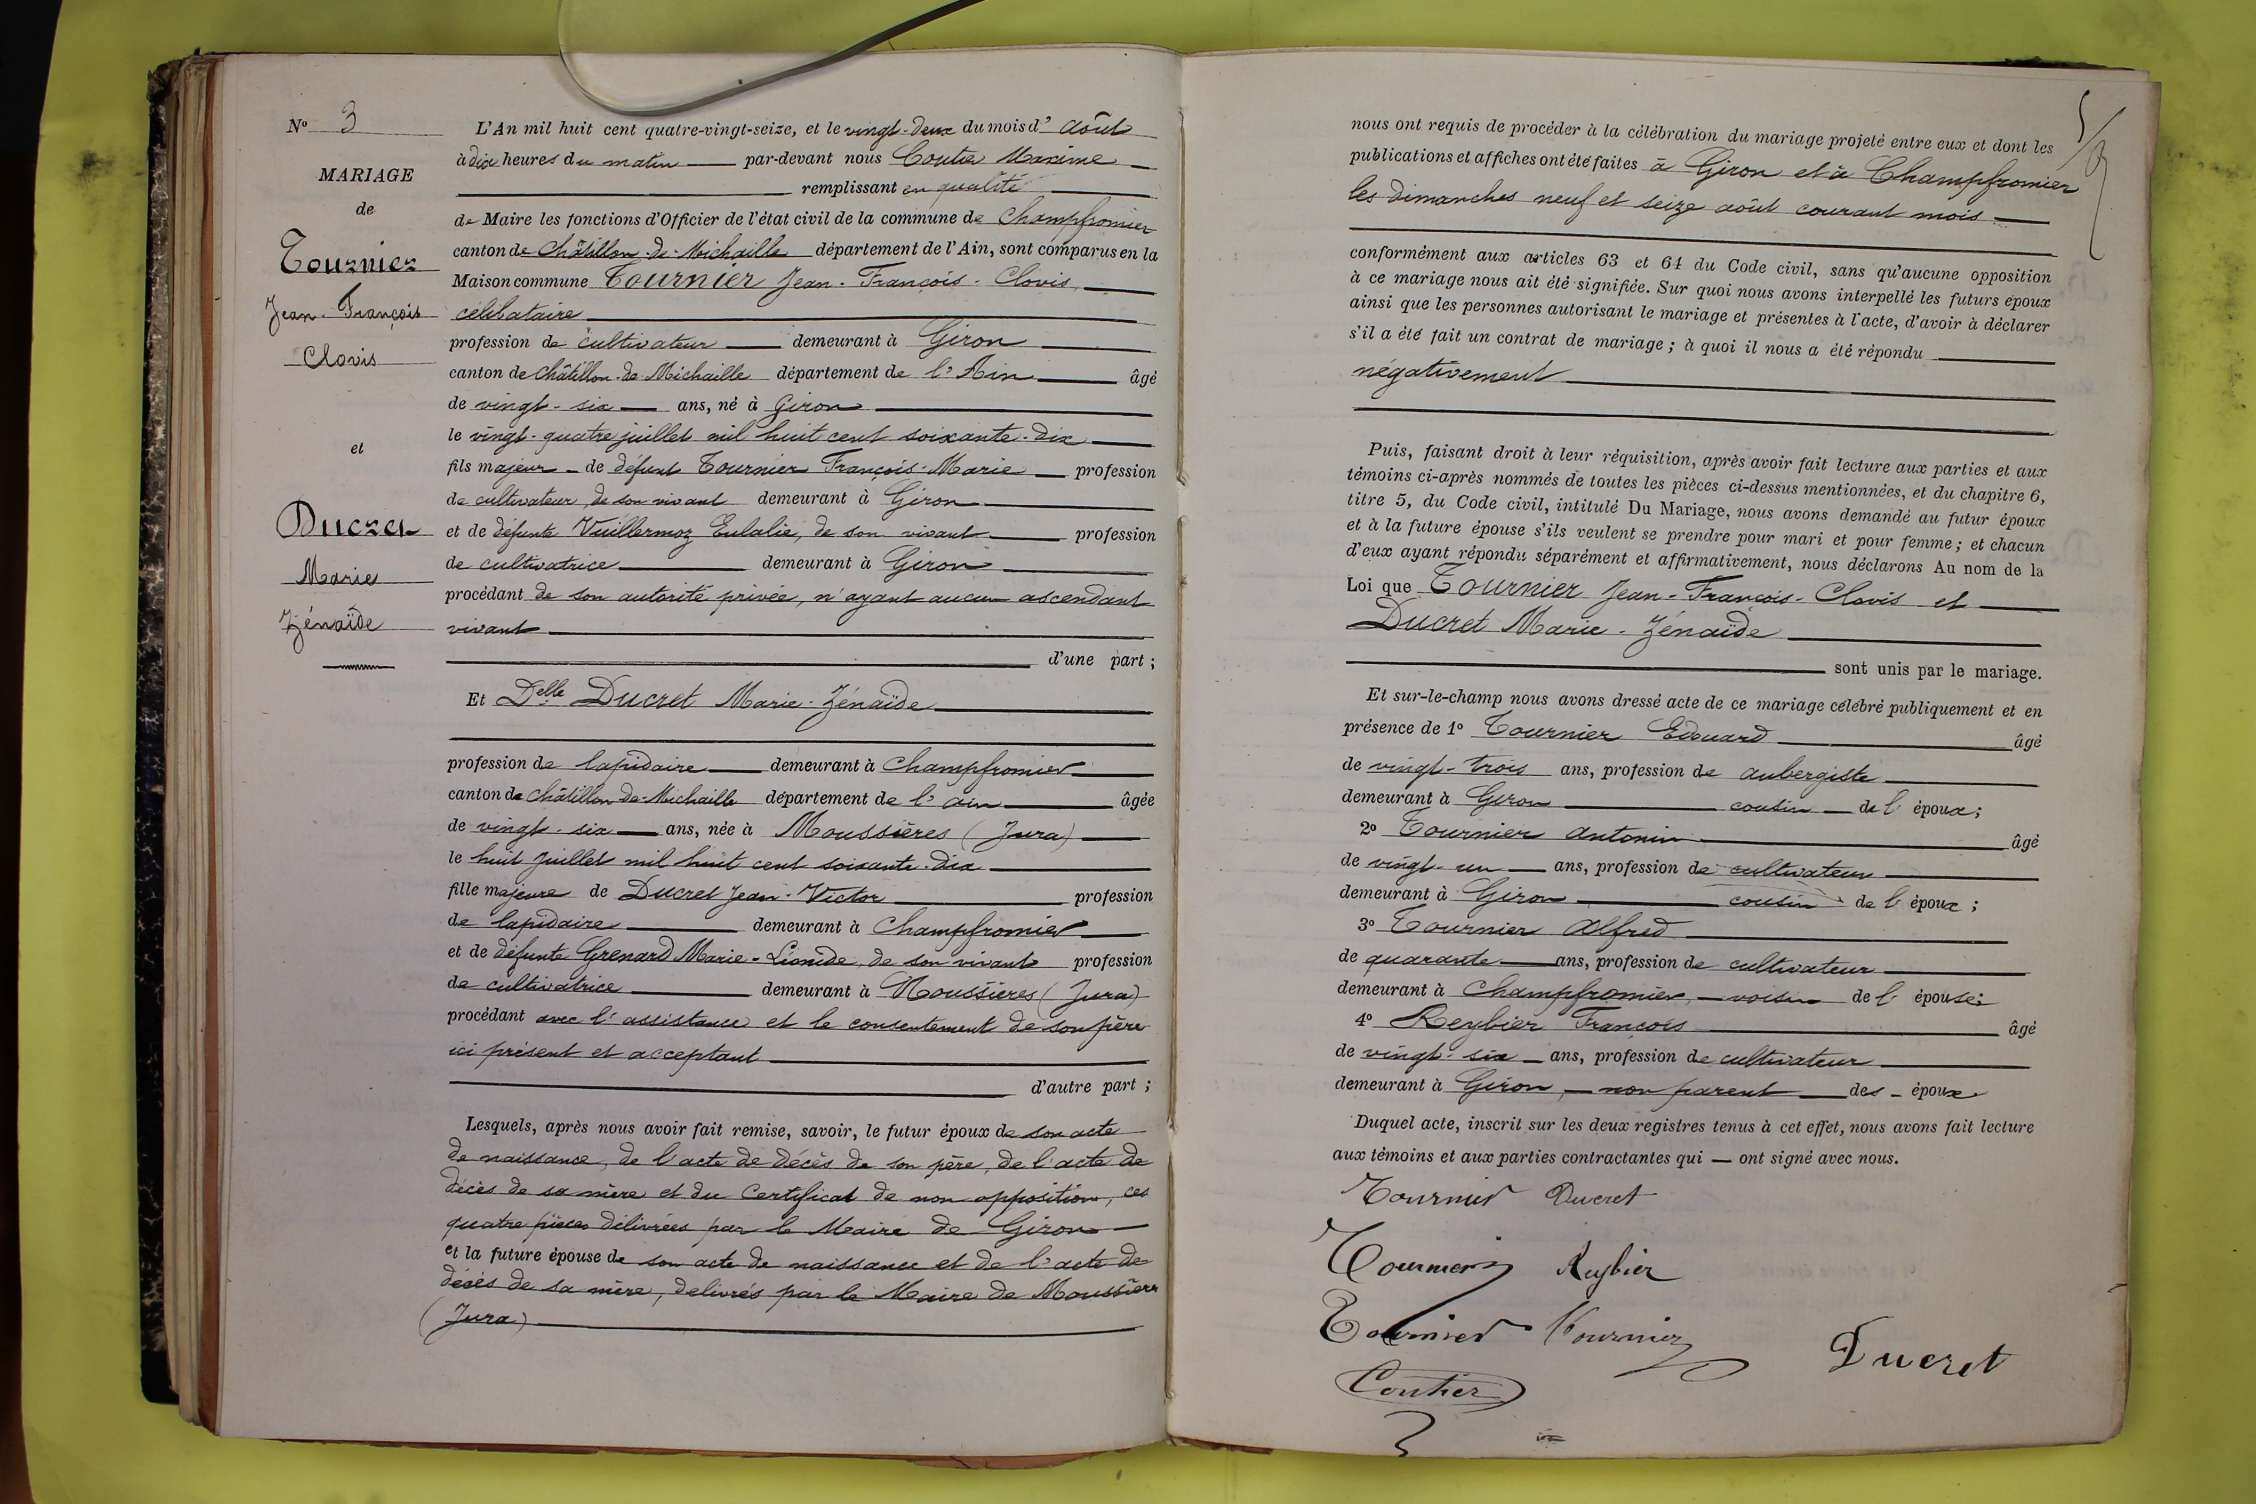 Nº 3
MARIAGE
de
Tournier
Jean-François
Clovis
et
Ducret
Marie
Zénaïde
L'An mil huit cent quatre-vingt-seize, et le vingt-deux du mois d' août
à dix heures du matin par-devant nous Coutier Maxime
remplissant en qualité
de Maire les fonctions d'Officier de l'état civil de la commune de Champfromier
canton de Châtillon-de-Michaille département de l'Ain, sont comparus en la
Maison commune Tournier Jean-François-Clovis,
célibataire
profession de cultivateur demeurant à Giron
canton de Châtillon-de-Michaille département de l'Ain âgé
de vingt-six ans, né à Giron
le vingt-quatre juillet mil huit cent soixante-dix
fils majeur de défunt Tournier François-Marie profession
de cultivateur, de son vivant demeurant à Giron
et de défunte Vuillermoz Eulalie, de son vivant profession
de cultivatrice demeurant à Giron
procédant de son autorité privée, n'ayant aucun ascendant
vivant
d'une part ;
Et Delle Ducret Marie-Zénaïde
profession de lapidaire demeurant à Champfromier
canton de Châtillon-de-Michaille département de l'ain âgée
de vingt-six ans, née à Moussières (Jura)
le huit juillet mil huit cent soixante-dix
fille majeure de Ducret Jean-Victor profession
de lapidaire demeurant à Champfromier
et de défunte Grenard Marie-Léonide, de son vivant profession
de cultivatrice demeurant à Moussières (Jura)
procédant avec l'assistance et le consentement de son père
ici présent et acceptant
d'autre part ;
Lesquels, après nous avoir fait remise, savoir, le futur époux de son acte
de naissance, de l'acte de décès de son père, de l'acte de
décès de sa mère et du Certificat de non opposition, ces
quatre pièces délivrées par le Maire de Giron
et la future épouse de son acte de naissance et de l'acte de
décès de sa mère, délivrés par le Maire de Moussières
(Jura)
nous ont requis de procéder à la célébration du mariage projeté entre eux et dont les
publications et affiches ont été faites à Giron et à Champfromier
les dimanches neuf et seize août courant mois
conformément aux articles 63 et 64 du Code civil, sans qu'aucune opposition
à ce mariage nous ait été signifiée. Sur quoi nous avons interpellé les futurs époux
ainsi que les personnes autorisant le mariage et présentes à l'acte, d'avoir à déclarer
s'il a été fait un contrat de mariage ; à quoi il nous a été répondu
négativement
Puis, faisant droit à leur réquisition, après avoir fait lecture aux parties et aux
témoins ci-après nommés de toutes les pièces ci-dessus mentionnées, et du chapitre 6,
titre 5, du Code civil, intitulé Du Mariage, nous avons demandé au futur époux
et à la future épouse s'ils veulent se prendre pour mari et pour femme ; et chacun
d'eux ayant répondu séparément et affirmativement, nous déclarons Au nom de la
Loi que Tournier Jean-François-Clovis et
Ducret Marie-Zénaïde
sont unis par le mariage.
Et sur-le-champ nous avons dressé acte de ce mariage célébré publiquement et en
présence de 1º Tournier Edouard âgé
de vingt-trois ans, profession de aubergiste
demeurant à Giron cousin de l' époux ;
2º Tournier Antonin âgé
de vingt-un ans, profession de cultivateur
demeurant à Giron cousin de l' époux ;
3º Tournier Alfred
de quarante ans, profession de cultivateur
demeurant à Champfromier, voisin de l' épouse;
4º Reybier François âgé
de vingt-six ans, profession de cultivateur
demeurant à Giron, non parent des époux
Duquel acte, inscrit sur les deux registres tenus à cet effet, nous avons fait lecture
aux témoins et aux parties contractantes qui ont signé avec nous.
Tournier Ducret
Tournier Reybier
Tournier Tournier
Ducret
Coutier